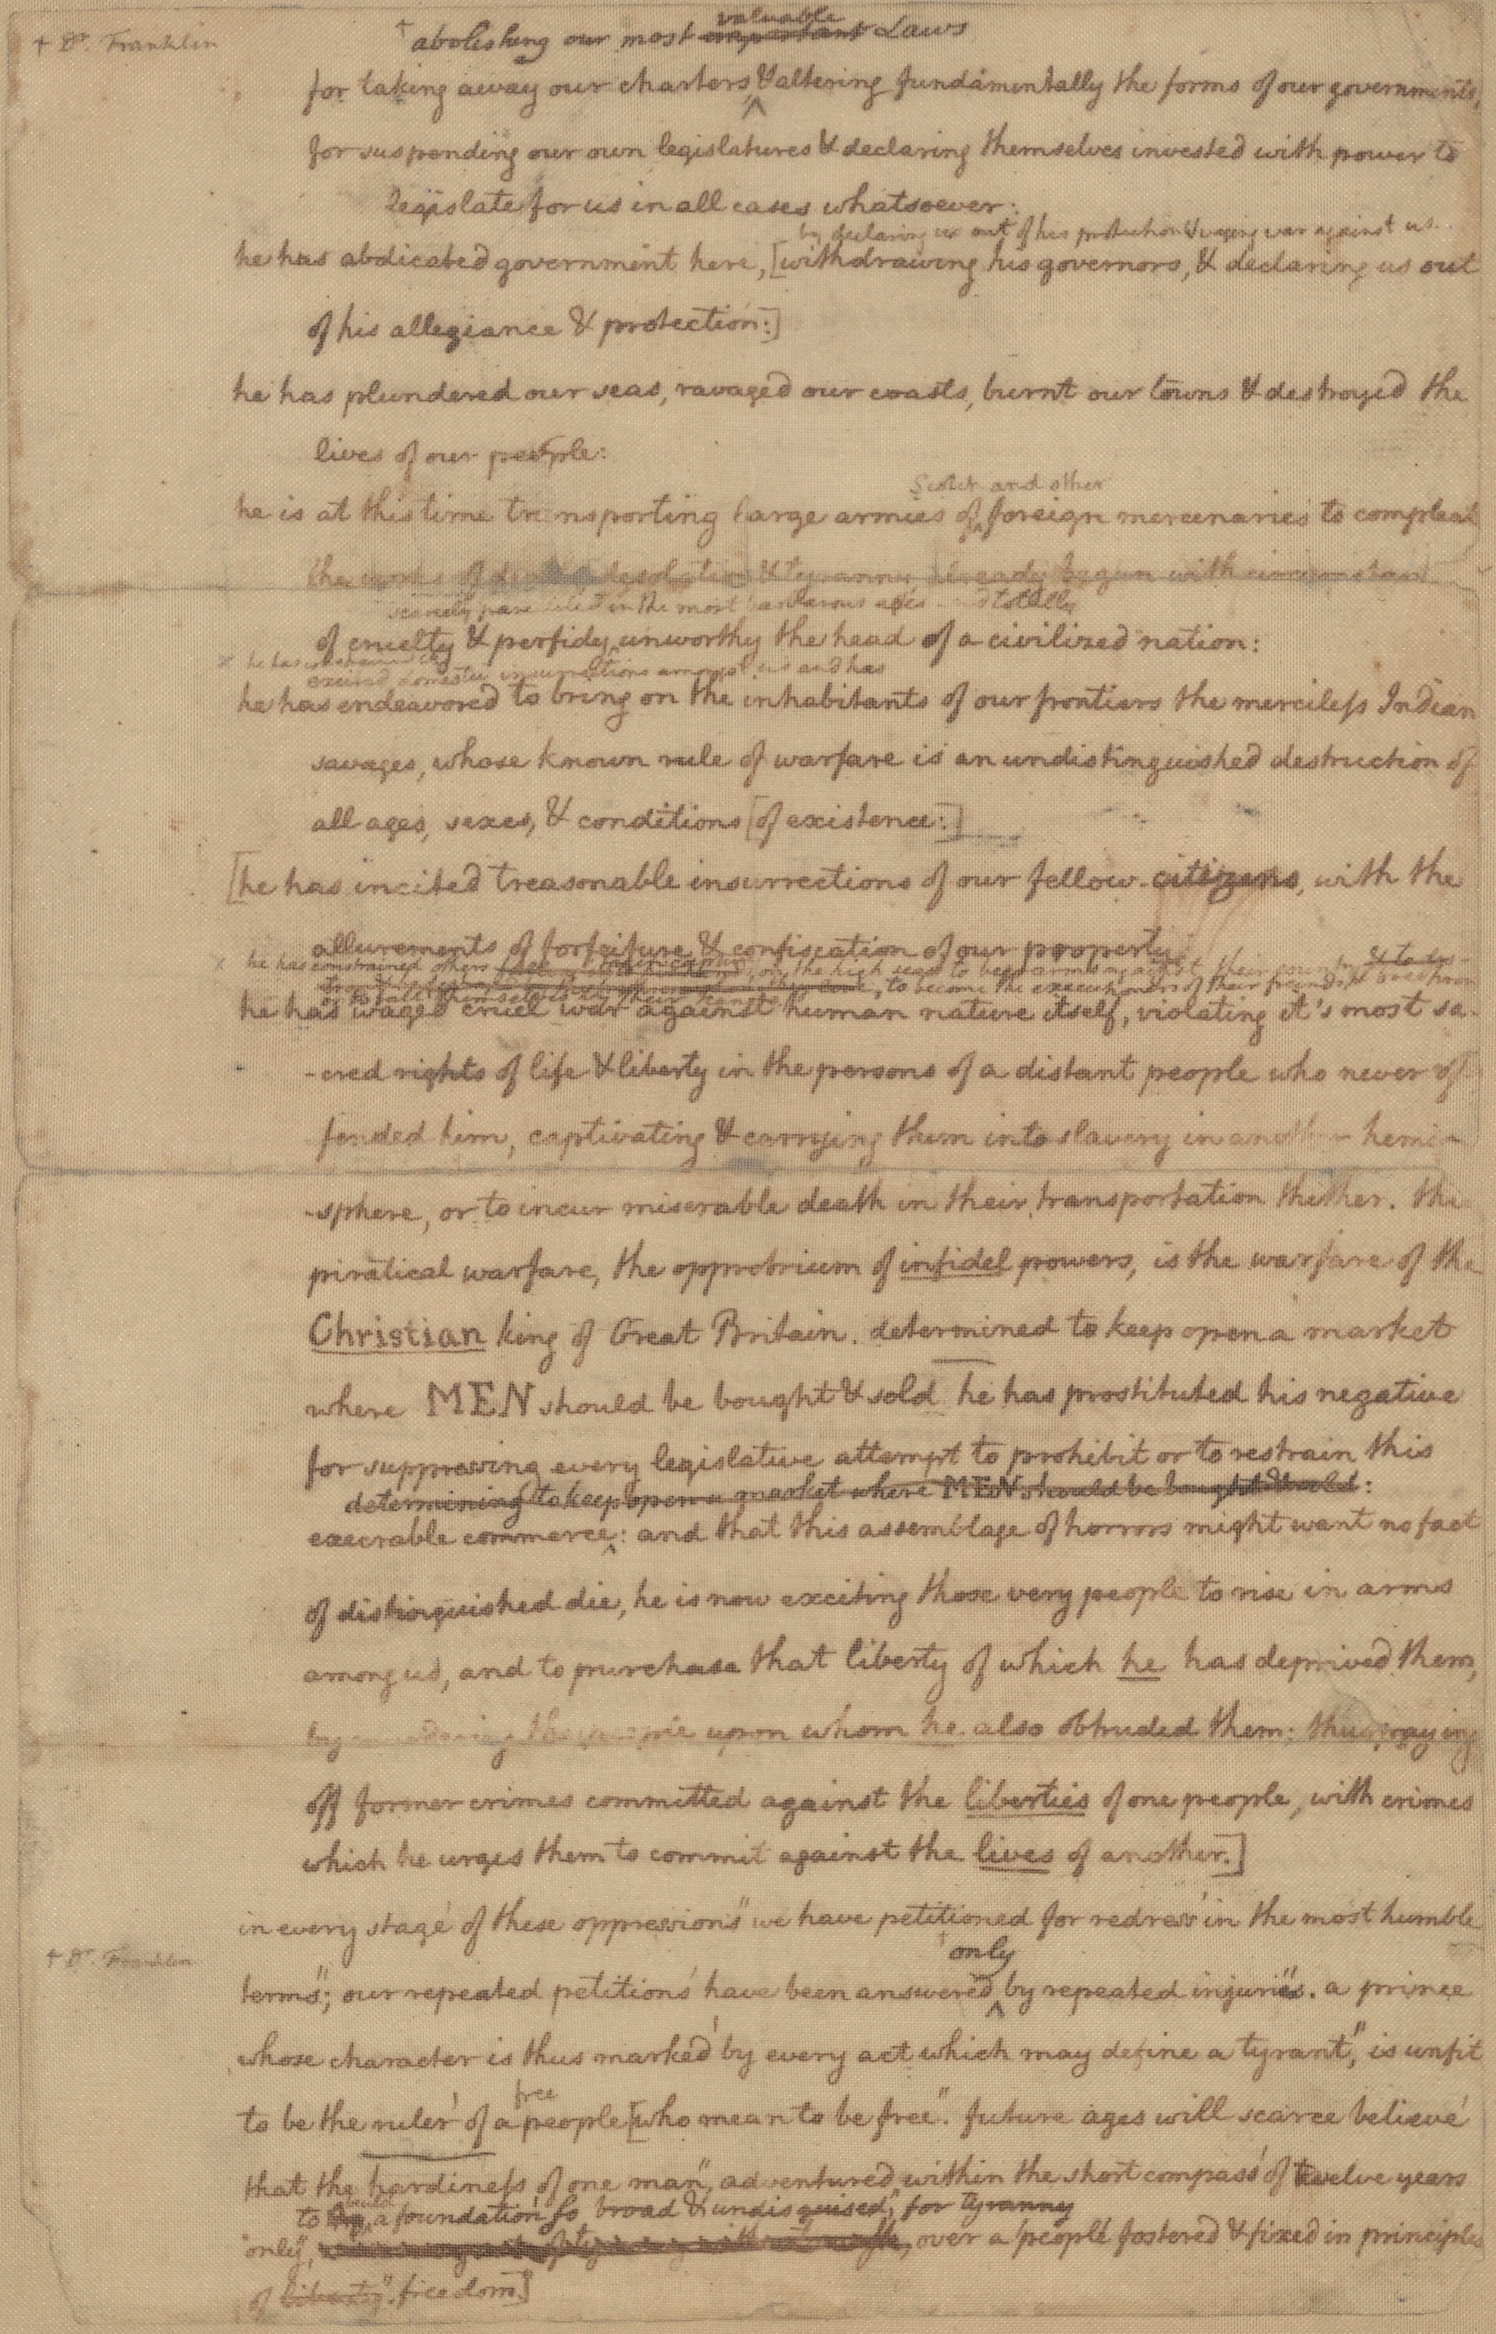 + Dr. Franklin
+ abolishing our most valuable important Laws
for taking away our charters & altering fundamentally the forms of our governments,
for suspending our own legislatures & declaring themselves invested with power to
legislate for us in all cases whatsoever:
by declaring us out of his protection & waging war against us.
he has abdicated government here, [withdrawing his governors, & declaring us out
of his allegiance & protection:]
he has plundered our seas, ravaged our coasts, burnt our towns & destroyed the
lives of our people:
Scotch and other
he is at this time transporting large armies of foreign mercenaries to compleat
the works of desolation & tyranny already begun with circumstances
scarcely paralleled in the most barbarous ages and totally
of cruelty & perfidy unworthy the head of a civilized nation:
x he has
excited domestic insurrections amongst us and has
he has endeavored to bring on the inhabitants of our frontiers the merciless Indian
savages, whose known rule of warfare is an undistinguished destruction of
all ages, sexes, & conditions [of existence:]
[he has incited treasonable insurrections of our fellow-citizens, with the
allurements of forfeiture & confiscation of our property
x he has constrained others taken captive on the high seas to bear arms against their country
to become the executioners of their friends & brethren
or to fall themselves by their hands
he has waged cruel war against human nature itself, violating it's most sa-
-cred rights of life & liberty in the persons of a distant people who never of-
fended him, captivating & carrying them into slavery in another hemi-
-sphere, or to incur miserable death in their transportation thither. this
piratical warfare, the opprobrium of infidel powers, is the warfare of the
Christian king of Great Britain. determined to keep open a market
where MEN should be bought & sold he has prostituted his negative
for suppressing every legislative attempt to prohibit or to restrain this
determining to keep open a market where MEN should be bought & sold:
execrable commerce: and that this assemblage of horrors might want no fact
of distinguished die, he is now exciting those very people to rise in arms
among us, and to purchase that liberty of which he has deprived them,
by murdering the people upon whom he also obtruded them: thus paying
off former crimes committed against the liberties of one people, with crimes
which he urges them to commit against the lives of another.]
in every stage of these oppressions" we have petitioned for redress in the most humble
+ Dr. Franklin
only
terms"; our repeated petitions have been answered by repeated injuries. a prince
whose character is thus marked by every act which may define a tyrant," is unfit
free
to be the ruler of a people [who mean to be free". future ages will scarce believe
that the hardiness of one man", adventured within the short compass of twelve years
to a foundation so broad & undisguised," for tyranny
only, over a people fostered & fixed in principles
of liberty" freedom.]